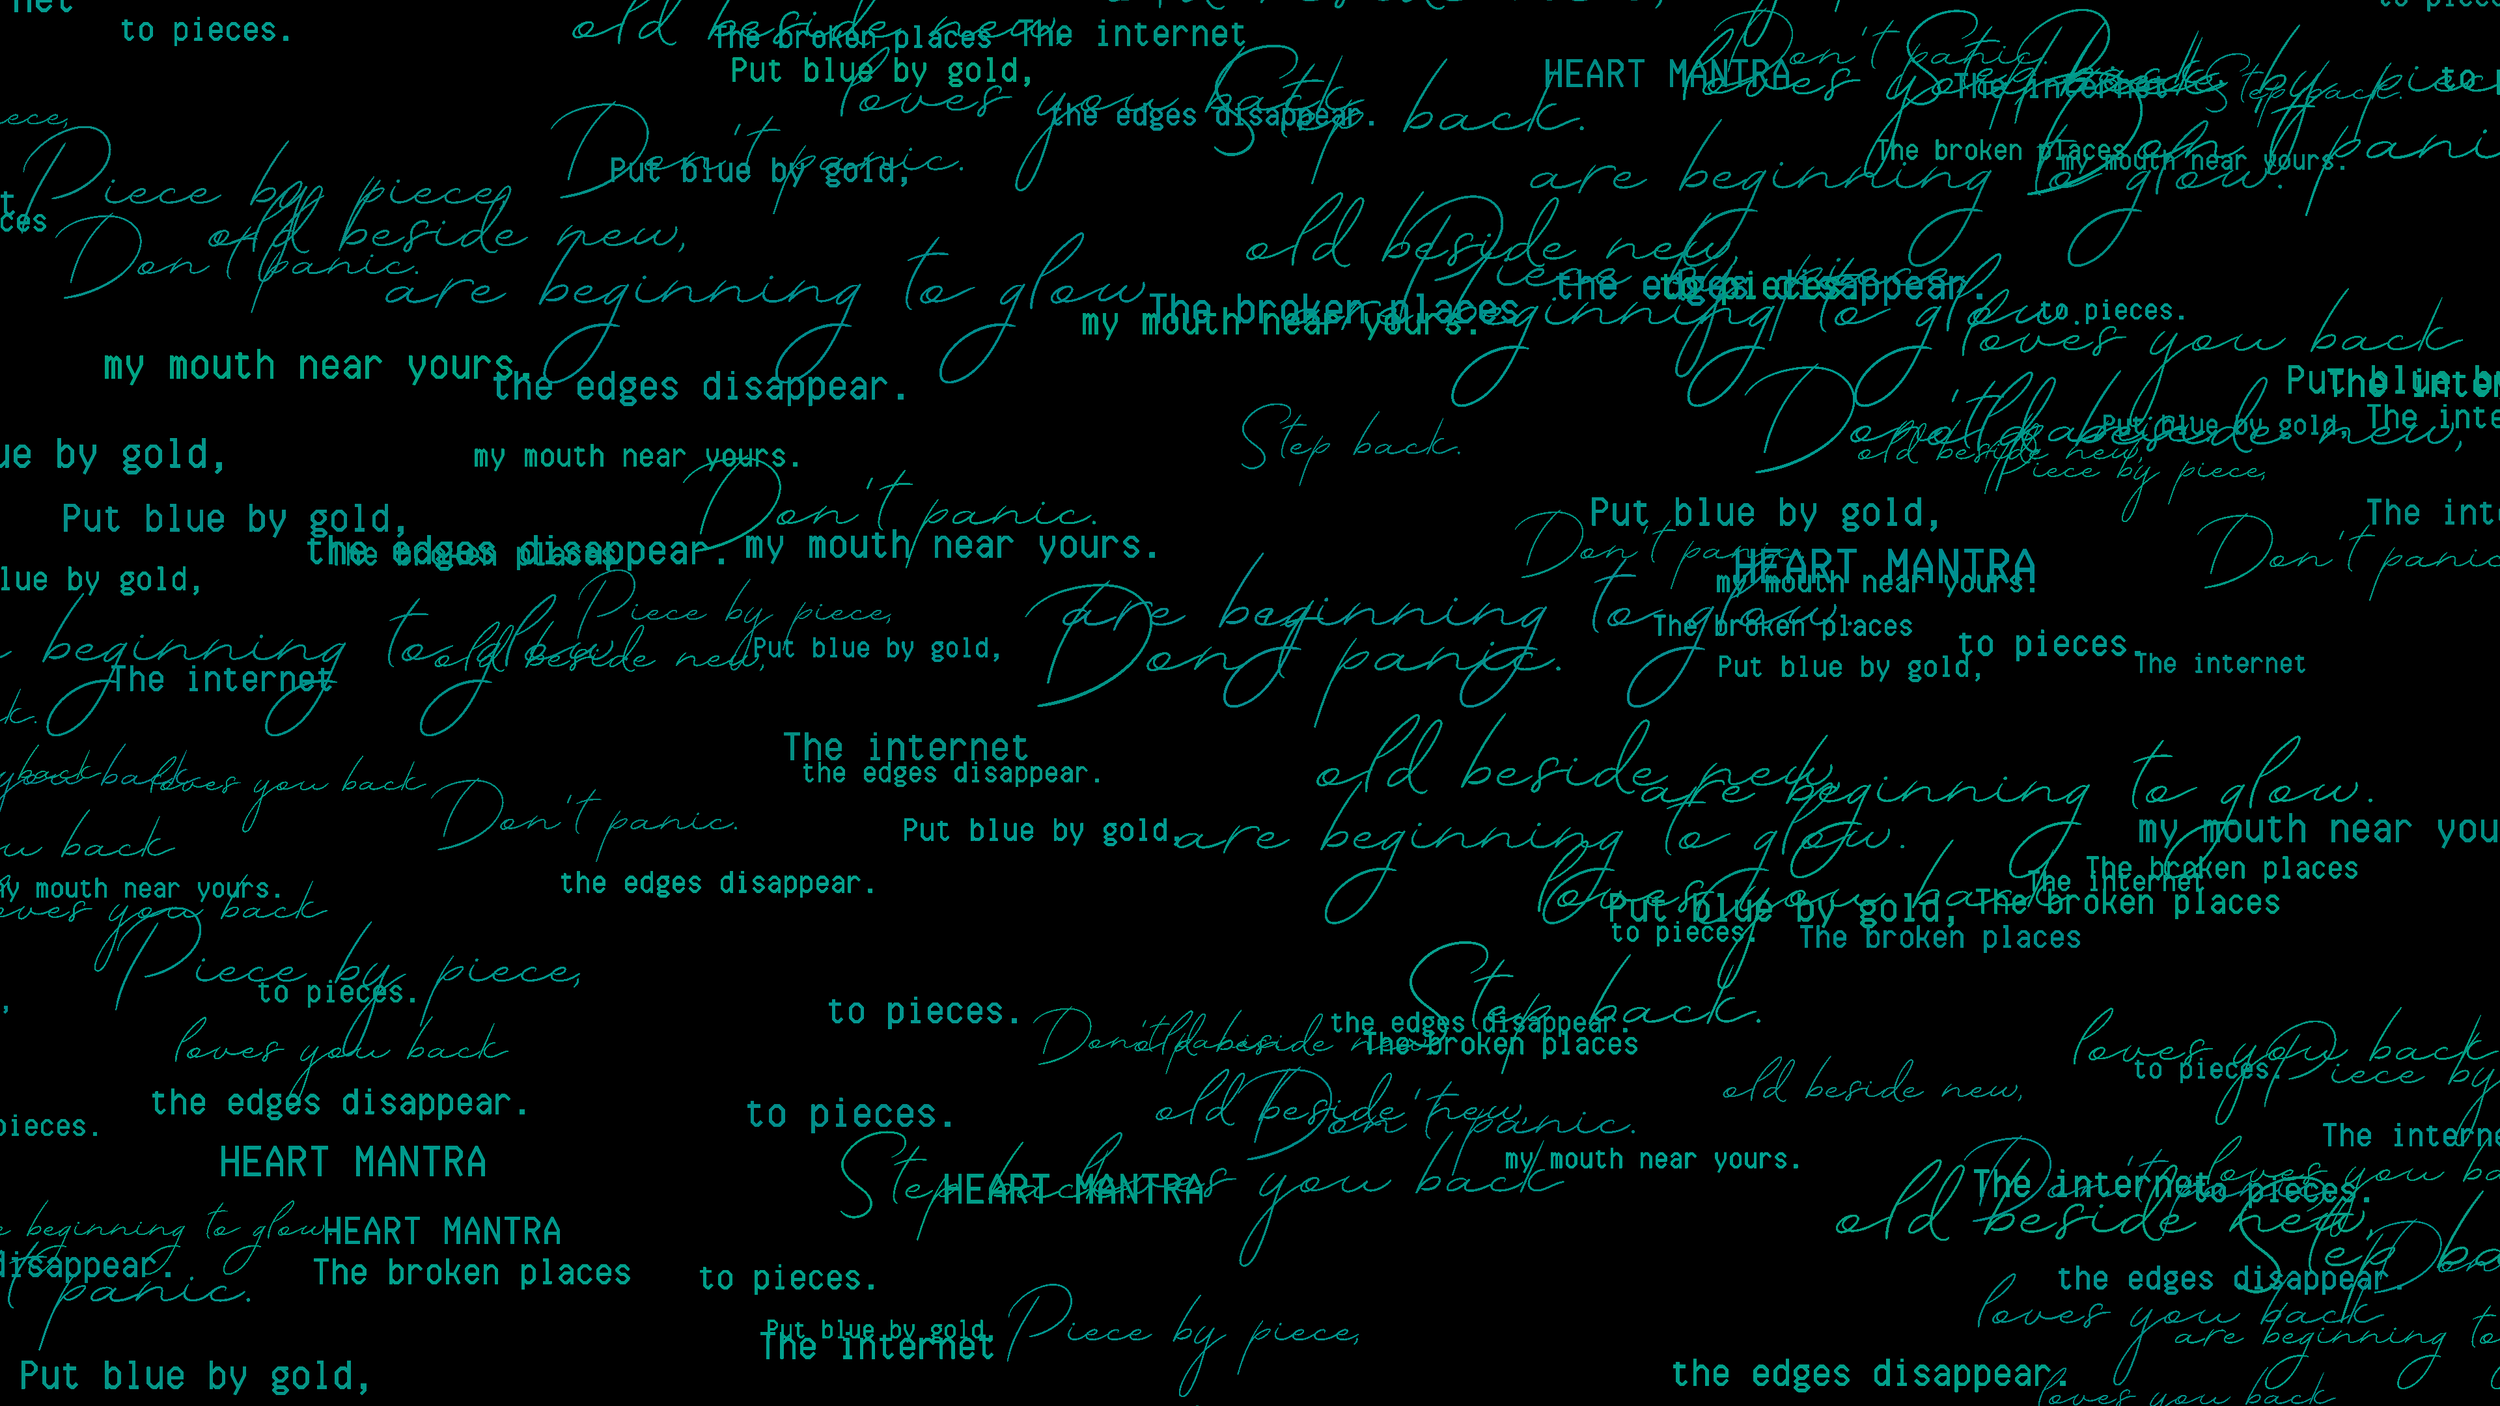 net
to pieces.
old beside new,
The broken places
The internet
Put blue by gold,
loves you back
the edges disappear.
Step back.
HEART MANTRA
Don't panic.
loves you back
Step by piece
The internet
Step back.
to p
to piec
iece,
Piece by piece,
Don't panic.
Put blue by gold,
are beginning to glow.
The broken places
my mouth near yours.
Don't pani
t
ces
old beside new,
Don't panic.
are beginning to glow.
old beside new,
Piece by piece,
the edges disappear.
to pieces.
The broken places
my mouth near yours.
are beginning to glow.
to pieces.
loves you back
my mouth near yours.
the edges disappear.
Put blue by
The inter
Step back.
Don't panic.
old beside new,
Put blue by gold,
The inte
old beside new,
Piece by piece,
ue by gold,
my mouth near yours.
Don't panic.
Put blue by gold,
The inte
Put blue by gold,
the edges disappear.
The broken places
my mouth near yours.
Don't panic.
HEART MANTRA
my mouth near yours.
Don't panic
lue by gold,
Piece by piece,
are beginning to glow.
The broken places
beginning to glow.
old beside new,
Put blue by gold,
Don't panic.
to pieces.
Put blue by gold,
The internet
The internet
k.
The internet
the edges disappear.
old beside new,
are beginning to glow.
you back
loves you back
Don't panic.
Put blue by gold,
are beginning to glow.
my mouth near you
u back
the edges disappear.
The broken places
The internet
my mouth near yours.
oves you back
loves you back
Put blue by gold,
The broken places
to pieces.
The broken places
Piece by piece,
to pieces.
to pieces.
Step back.
the edges disappear.
Don't panic.
old beside new,
The broken places
loves you back
loves you back
Piece by
to pieces.
the edges disappear.
old beside new,
pieces.
to pieces.
old beside new,
Don't panic.
my mouth near yours.
The interne
HEART MANTRA
Step back.
HEART MANTRA
loves you back
Don't panic.
The internet
loves you ba
to pieces.
old beside new,
e beginning to glow.
HEART MANTRA
disappear.
The broken places
to pieces.
Step bac
Don
the edges disappear.
t panic.
loves you back
are beginning to
Put blue by gold,
The internet
Piece by piece,
Put blue by gold,
the edges disappear.
loves you back